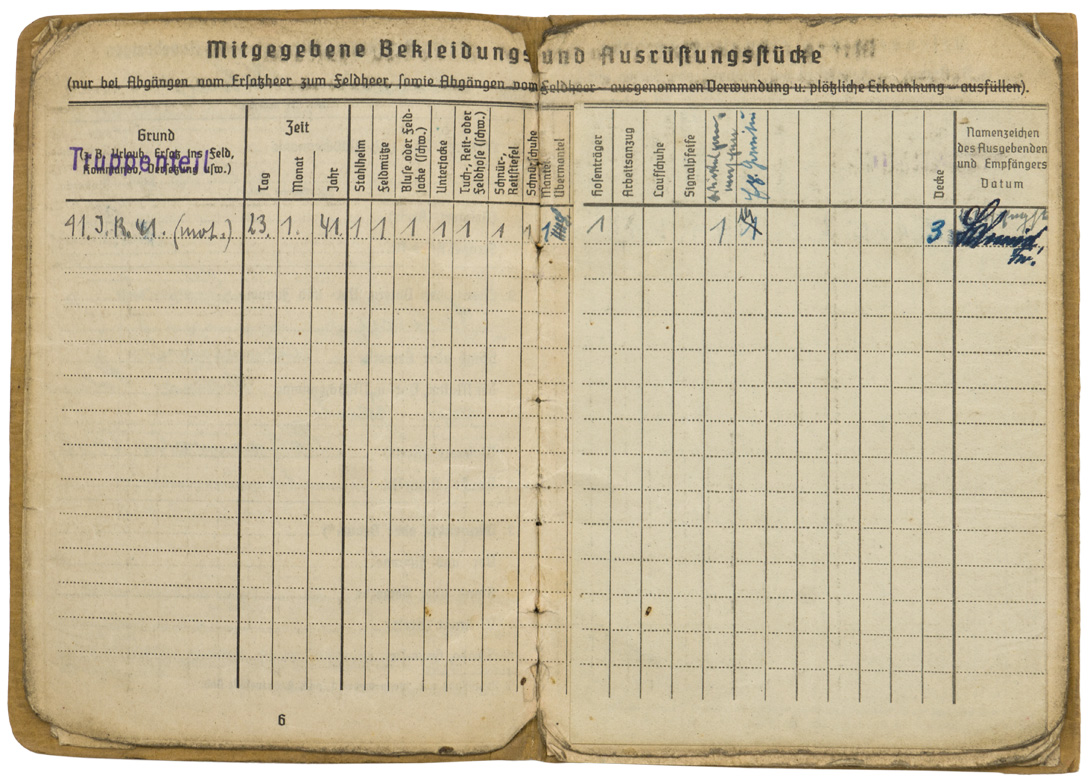 Mitgegebene Bekleidungs und Ausrüstungsstücke
(nur bei Abgängen vom Ersatzheer zum Feldheer, sowie Abgängen vom Feldheer – ausgenommen Verwundung u. plötzliche Erkrankung – ausfüllen).
Grund
(z. B. Urlaub, Ersatz ins Feld,
Kommando, Versetzung usw.)
Truppenteil
Zeit
Tag
Monat
Jahr
Stahlhelm
Feldmütze
Bluse oder Feld-
jacke (schw.)
Unterjacke
Tuch-, Reit- oder
Feldhose (schw.)
Schnür-,
Reitstiefel
Schnürschuhe
Mantel
Übermantel
Hosenträger
Arbeitsanzug
Laufschuhe
Signalpfeife
Decke
Namenzeichen
des Ausgebenden
und Empfängers
Datum
11. I. R. 41. (mot.) 23. 1. 41. 1 1 1 1 1 1 1 1 1 1 3
6